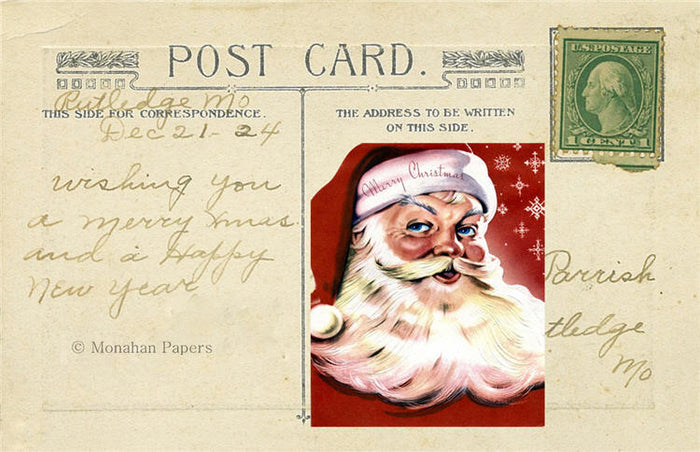 POST CARD.
U.S. POSTAGE
1 CENT 1
THIS SIDE FOR CORRESPONDENCE.
THE ADDRESS TO BE WRITTEN
ON THIS SIDE.
Rutledge Mo
Dec 21-24
Wishing you
a merry xmas
and a Happy
New Year
© Monahan Papers
Merry Christmas
Parrish
tledge
Mo